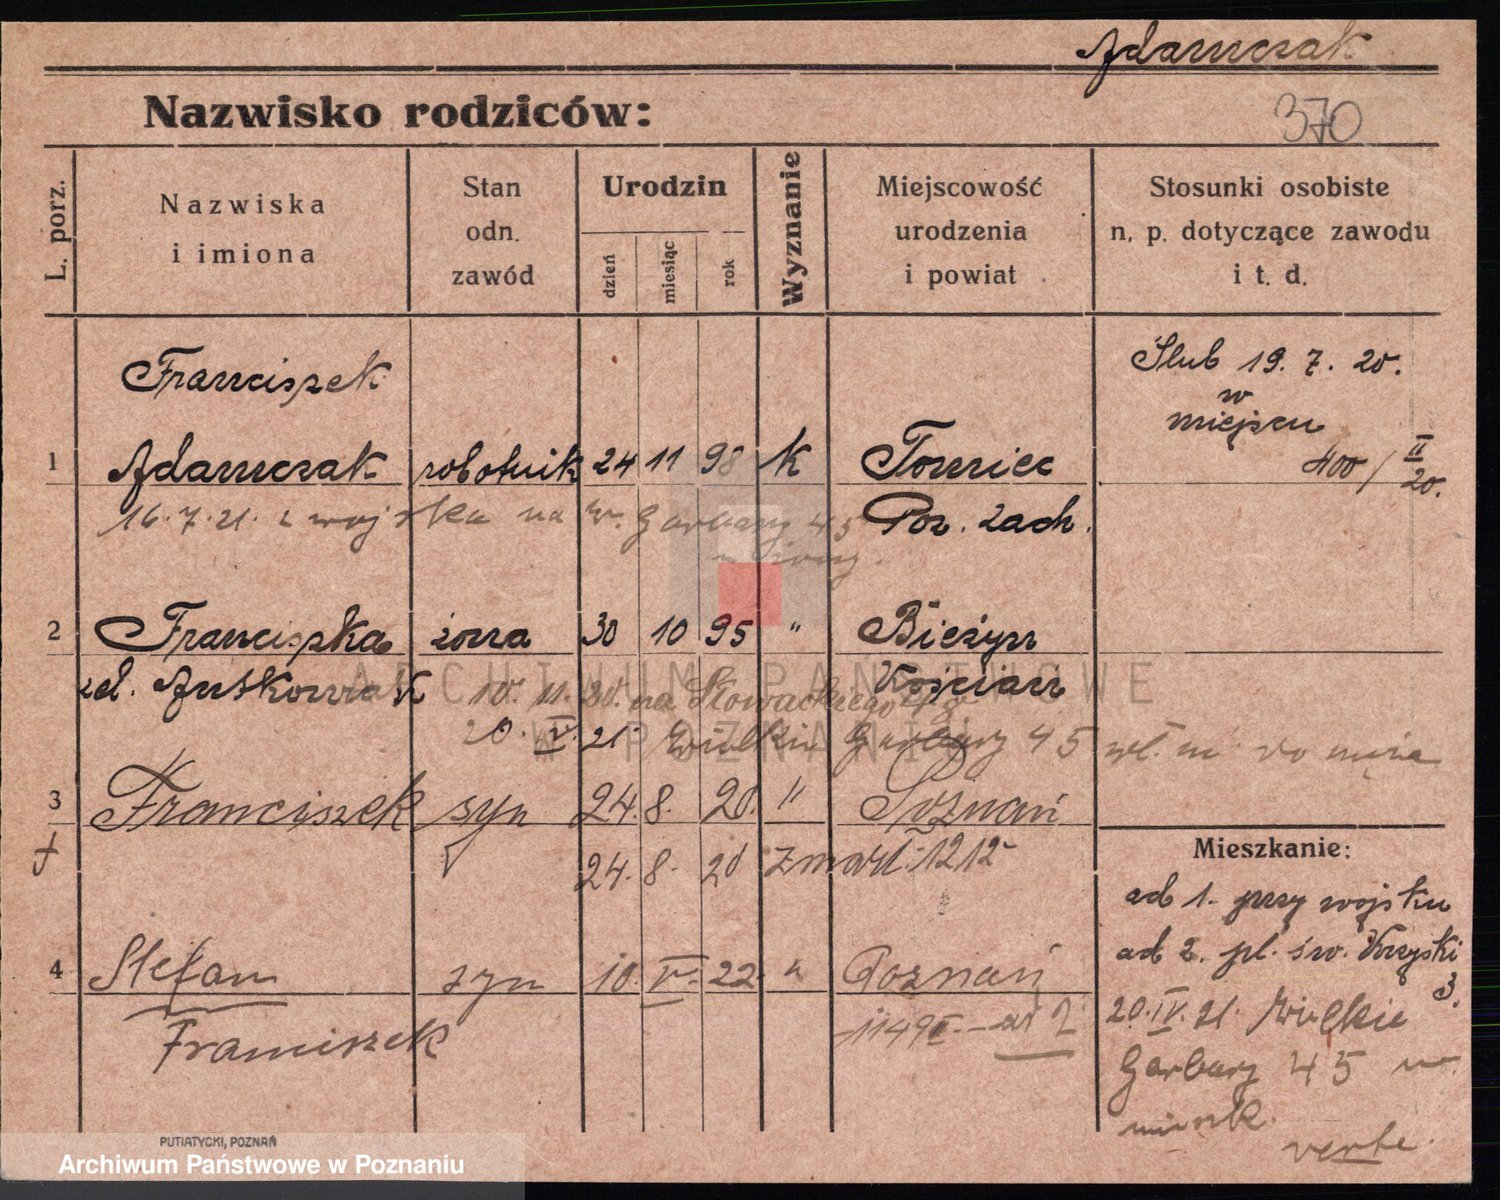 Adamczak
Nazwisko rodziców:
370
L. porz.
Nazwiska
i imiona
Stan
odn.
zawód
Urodzin
dzień
miesiąc
rok
Wyznanie
Miejscowość
urodzenia
i powiat
Stosunki osobiste
n. p. dotyczące zawodu
i t. d.
Franciszek
Ślub 19. 7. 20.
w
miejscu
1 Adamczak robotnik 24 11 98 k Tomice 400/II 20.
16.7.21. z wojska na W. Garbary 45
Poz. zach.
2 Franciszka żona 30 10 95 " Bieżyn
Kościan
10. 11. 20. na Słowackiego 48
20. IV. 21. Wielkie Garbary 45 do męża
3 Franciszek syn 24. 8. 20. " Poznań
24. 8. 20 zmarł 12 12
Mieszkanie:
ad 1. przy wojsku
ad 2. pl. św. Krzyski
3.
4 Stefan syn 10. V. 22. " Poznań
Franciszek
20. IV. 21. Wielkie
Garbary 45
mieszk.
verte.
ARCHIWUM PAŃSTWOWE
W POZNANIU
PUTIATYCKI, POZNAŃ
Archiwum Państwowe w Poznaniu